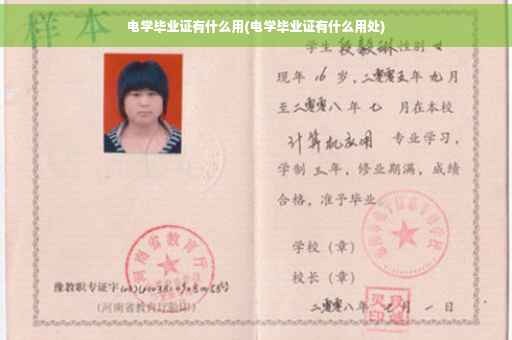 电学毕业证有什么用(电学毕业证有什么用处)
样本
学生 段毅琳 性别 女
现年 16 岁，二零零五年 九 月
至二零零八 年 七 月在本校
计算机应用 专业学习，
学制 三 年，修业期满，成绩
合格，准予毕业
学校（章）
校长（章）
二零零八年 七 月 一 日
河南省教育厅
豫教职专证字
(河南省教育厅验印)